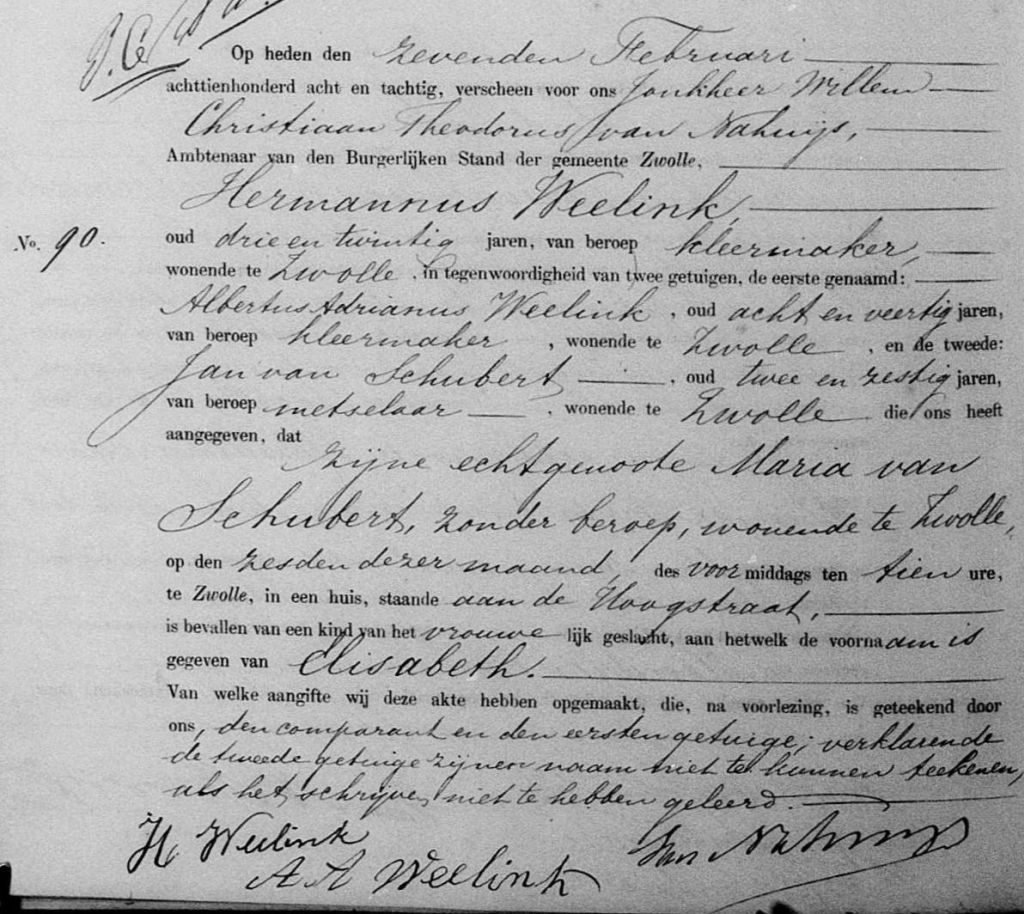 Op heden den zevenden Februari
achttienhonderd acht en tachtig, verscheen voor ons Jonkheer Willem
Christiaan Theodorus van Nahuijs,
Ambtenaar van den Burgerlijken Stand der gemeente Zwolle,
Hermannus Weelink,
No. 90. oud drie en twintig jaren, van beroep kleermaker,
wonende te Zwolle, in tegenwoordigheid van twee getuigen, de eerste genaamd:
Albertus Adrianus Weelink, oud acht en veertig jaren,
van beroep kleermaker, wonende te Zwolle, en de tweede:
Jan van Schubert, oud twee en zestig jaren,
van beroep metselaar, wonende te Zwolle die ons heeft
aangegeven, dat
zijne echtgenoote Maria van
Schubert, zonder beroep, wonende te Zwolle,
op den zesden dezer maand, des voormiddags ten tien ure,
te Zwolle, in een huis, staande aan de Hoogstraat,
is bevallen van een kind van het vrouwelijk geslacht, aan hetwelk de voornaam is
gegeven van Elisabeth.
Van welke aangifte wij deze akte hebben opgemaakt, die, na voorlezing, is geteekend door
ons, den comparant en den eersten getuige; verklarende
de tweede getuige zijnen naam niet te kunnen teekenen,
als het schrijven niet te hebben geleerd.
H Weelink
A A Weelink
van Nahuijs